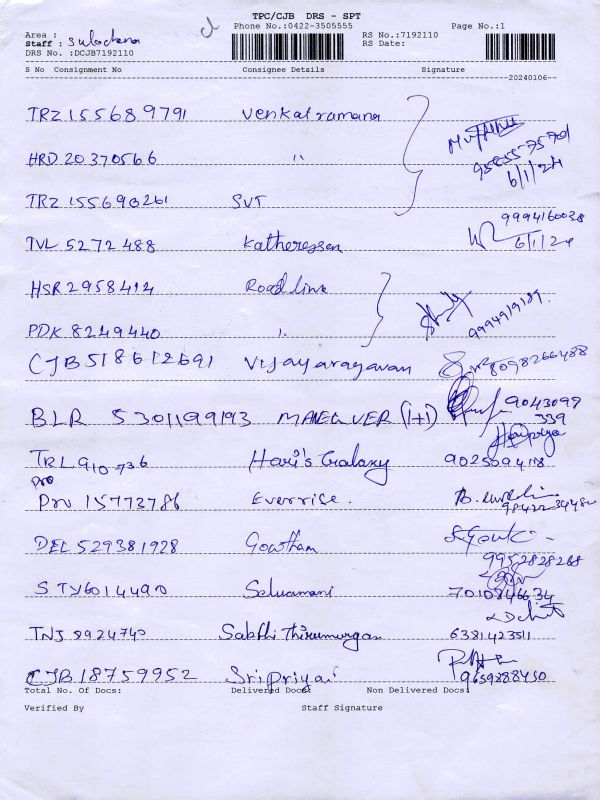 TPC/CJB DRS - SPT
Phone No.:0422-3505555 Page No.:1
Area : RS No.:7192110
Staff : Sulochana RS Date:
DRS No. :DCJB7192110
S No Consignment No Consignee Details Signature
20240106
TRZ 155689791 Venkatramana
HRD 20370566 "
6/1/24
TRZ 155690261 SVT
9994160038
TVL 5272488 Katheressan 6/1/24
HSR 2958414 Roadlink
PDK 8249440 "
CJB 518612691 Vijayaragavan 8098266488
BLR 5301199193 MANEUVER (1+1) 9043099
339
Haripriya
TRL 910736 Hari's Galaxy 9025094118
Pro
PRV 15773786 Everrise.
DEL 529381928 Gowtham
9952828268
STY 6014490 Selvamani 7010846634
TNJ 8924740 Sakthi Thirumurgan 6381423511
CJB 18759952 Sripriya
9659888450
Total No. Of Docs: Delivered Docs: Non Delivered Docs:
Verified By Staff Signature